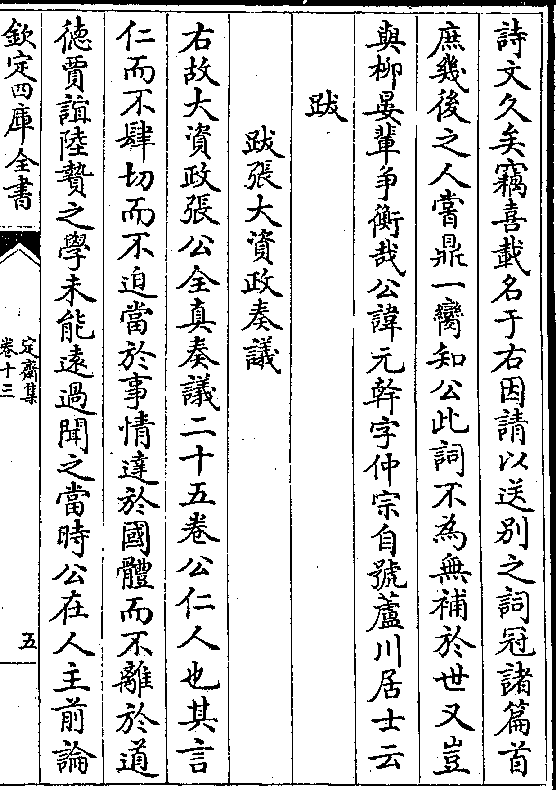 詩文久矣竊喜載名于右因請以送別之詞冠諸篇首
庶幾後之人嘗鼎一臠知公此詞不為無補於世又豈
與柳晏輩爭衡哉公諱元幹字仲宗自號蘆川居士云
跋
跋張大資政奏議
右故大資政張公全真奏議二十五卷公仁人也其言
仁而不肆切而不迫當於事情達於國體而不離於道
徳賈誼陸贄之學未能遠過聞之當時公在人主前論
欽定四庫全書
定齋集
卷十三
五